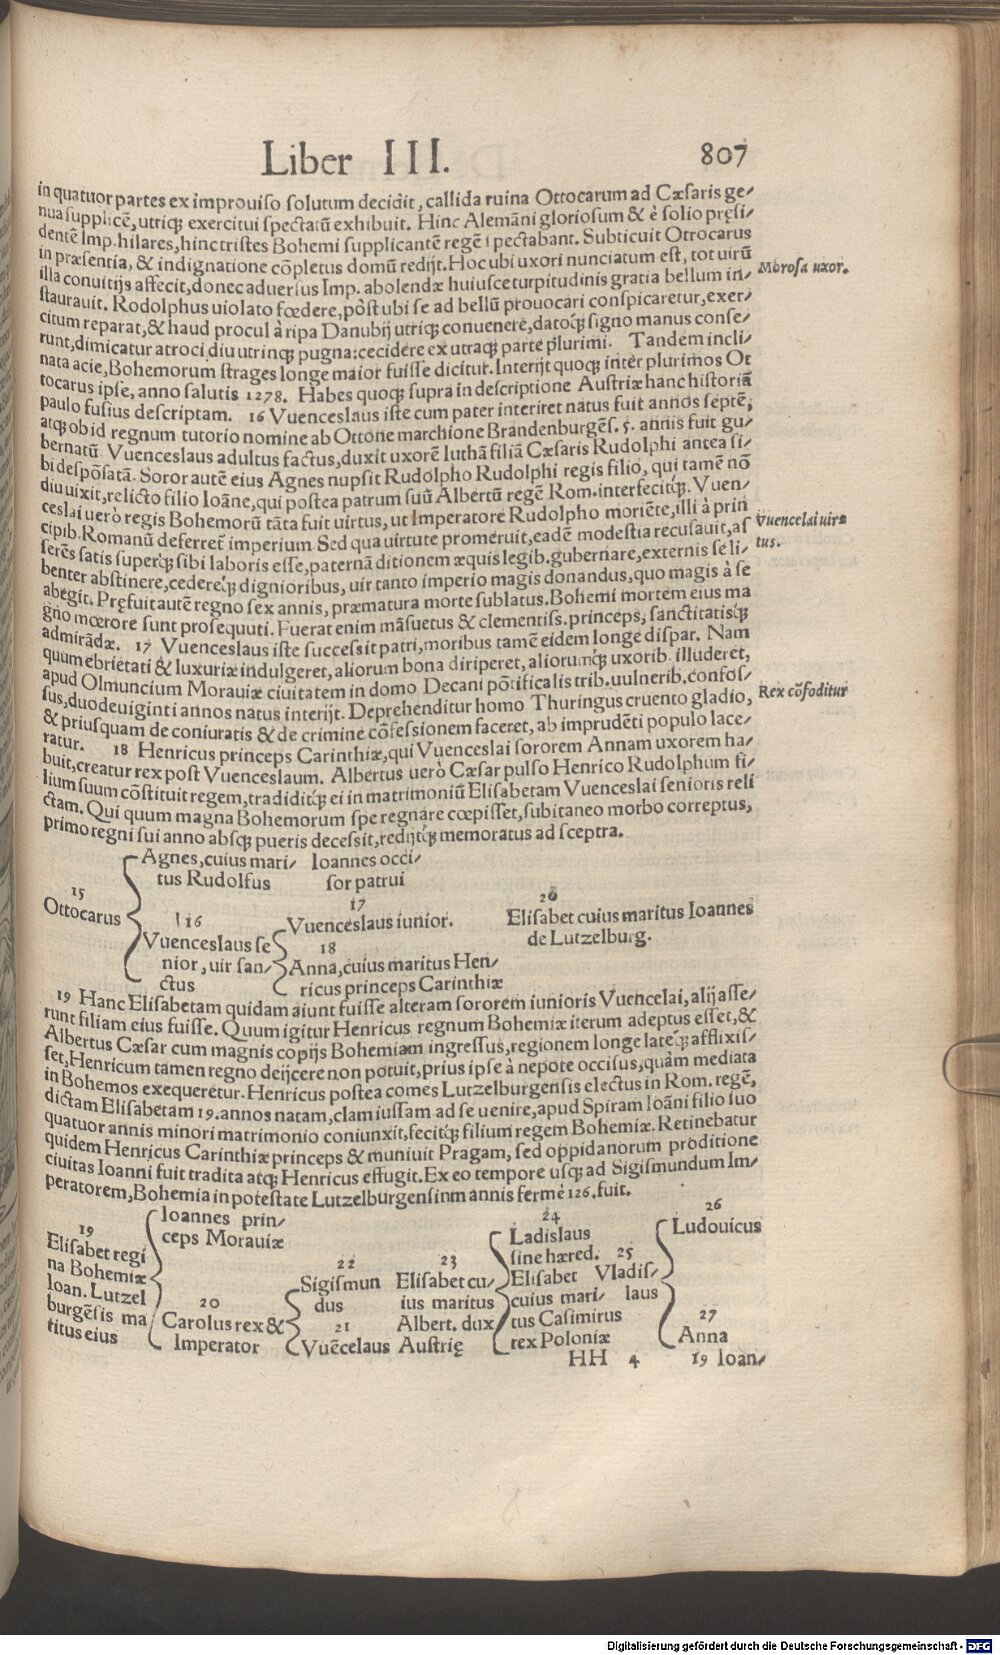 Liber III. 807
in quatuor partes ex improuiso solutum decidit, callida ruina Ottocarum ad Cæsaris ge/
nua supplicẽ, utriq; exercitui spectatũ exhibuit. Hinc Alemãni gloriosum & è solio pręsi/
dentẽ Imp. hilares, hinc tristes Bohemi supplicantẽ regẽ spectabant. Subticuit Ottocarus
in præsentia, & indignatione cõpletus domũ redijt. Hoc ubi uxori nunciatum est, tot uirũ
Morosa uxor.
illa conuitijs affecit, donec aduersus Imp. abolendæ huiusce turpitudinis gratia bellum in/
staurauit. Rodolphus uiolato fœdere, pòst ubi se ad bellũ prouocari conspicaretur, exer/
citum reparat, & haud procul à ripa Danubij utriq; conuenere, datoq́; signo manus conse/
runt, dimicatur atroci diu utrinq; pugna: cecidere ex utraq; parte plurimi. Tandem incli/
nata acie, Bohemorum strages longe maior fuisse dicitur. Interijt quoq; inter plurimos Ot
tocarus ipse, anno salutis 1278. Habes quoq; supra in descriptione Austriæ hanc historiã
paulo fusius descriptam. 16 Vuenceslaus iste cum pater interiret natus fuit annos septẽ,
atq; ob id regnum tutorio nomine ab Ottone marchione Brandenburgẽs. 5. annis fuit gu/
bernatũ. Vuenceslaus adultus factus, duxit uxorẽ Iuthã filiã Cæsaris Rudolphi antea si/
bi despõsatã. Soror autẽ eius Agnes nupsit Rudolpho Rudolphi regis filio, qui tamẽ nõ
diu uixit, relicto filio Ioãne, qui postea patrum suũ Albertũ regẽ Rom. interfecitq́;. Vuen/
ceslai uerò regis Bohemorũ tãta fuit uirtus, ut Imperatore Rudolpho moriẽte, illi à prin
Vuencelai uir=
cipib. Romanũ deferret̃ imperium Sed qua uirtute promeruit, eadẽ modestia recusauit, as
tus.
serẽs satis superq́; sibi laboris esse, paternã ditionem æquis legib. gubernare, externis se li/
benter abstinere, cedereq́; dignioribus, uir tanto imperio magis donandus, quo magis à se
abegit. Pręfuit autẽ regno sex annis, præmatura morte sublatus. Bohemi mortem eius ma
gno mœrore sunt prosequuti. Fuerat enim mãsuetus & clementiss. princeps, sanctitatisq́;
admirãdæ. 17 Vuenceslaus iste successit patri, moribus tamẽ eidem longe dispar. Nam
quum ebrietati & luxuriæ indulgeret, aliorum bona diriperet, aliorumq́; uxorib. illuderet,
apud Olmuncium Morauiæ ciuitatem in domo Decani põtificalis trib. uulnerib. confos/
Rex cõfoditur
sus, duodeuiginti annos natus interijt. Deprehenditur homo Thuringus cruento gladio,
& priusquam de coniuratis & de crimine cõfessionem faceret, ab imprudẽti populo lace/
ratur. 18 Henricus princeps Carinthiæ, qui Vuenceslai sororem Annam uxorem ha/
buit, creatur rex post Vuenceslaum. Albertus uerò Cæsar pulso Henrico Rudolphum fi/
lium suum cõstituit regem, tradiditq́; ei in matrimoniũ Elisabetam Vuenceslai senioris reli
ctam. Qui quum magna Bohemorum spe regnare cœpisset, subitaneo morbo correptus,
primo regni sui anno absq; pueris decessit, redijtq́; memoratus ad sceptra.
Agnes, cuius mari/ Ioannes occi/
tus Rudolfus sor patrui
15
Ottocarus
16
Vuenceslaus se
nior, uir san/
ctus
17
Vuenceslaus iunior.
18
Anna, cuius maritus Hen/
ricus princeps Carinthiæ
20
Elisabet cuius maritus Ioannes
de Lutzelburg.
19 Hanc Elisabetam quidam aiunt fuisse alteram sororem iunioris Vuencelai, alij asse/
runt filiam eius fuisse. Quum igitur Henricus regnum Bohemiæ iterum adeptus esset, &
Albertus Cæsar cum magnis copijs Bohemiam ingressus, regionem longe lateq́; afflixis/
set, Henricum tamen regno deijcere non potuit, prius ipse à nepote occisus, quàm mediata
in Bohemos exequeretur. Henricus postea comes Lutzelburgensis electus in Rom. regẽ,
dictam Elisabetam 19. annos natam, clam iussam ad se uenire, apud Spiram Ioãni filio suo
quatuor annis minori matrimonio coniunxit, fecitq́; filium regem Bohemiæ. Retinebatur
quidem Henricus Carinthiæ princeps & muniuit Pragam, sed oppidanorum proditione
ciuitas Ioanni fuit tradita atq; Henricus effugit. Ex eo tempore usq; ad Sigismundum Im/
peratorem, Bohemia in potestate Lutzelburgensium annis fermè 126. fuit.
19
Elisabet regi
na Bohemiæ
Ioan. Lutzel
burgẽsis ma
titus eius
Ioannes prin/
ceps Morauiæ
20
Carolus rex &
Imperator
22
Sigismun
dus
21
Vuẽcelaus
23
Elisabet cu/
ius maritus
Albert. dux
Austrię
24
Ladislaus
sine hæred.
Elisabet
cuius mari/
tus Casimirus
rex Poloniæ
25
Vladis/
laus
26
Ludouicus
27
Anna
HH 4 19 Ioan/
Digitalisierung gefördert durch die Deutsche Forschungsgemeinschaft - DFG